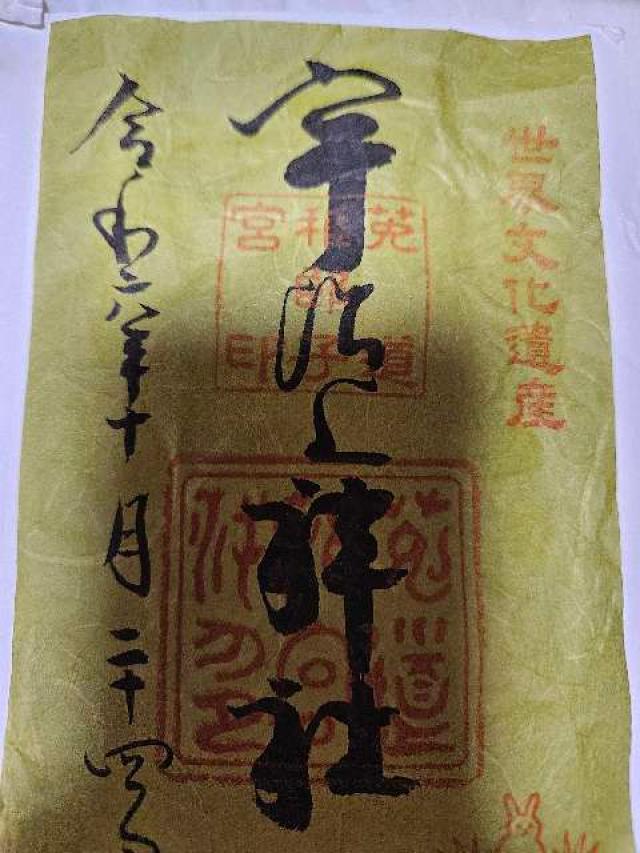 世界文化遺産
宇治上神社
莵道
稚郎子
宮印
令和六年十月二十四日